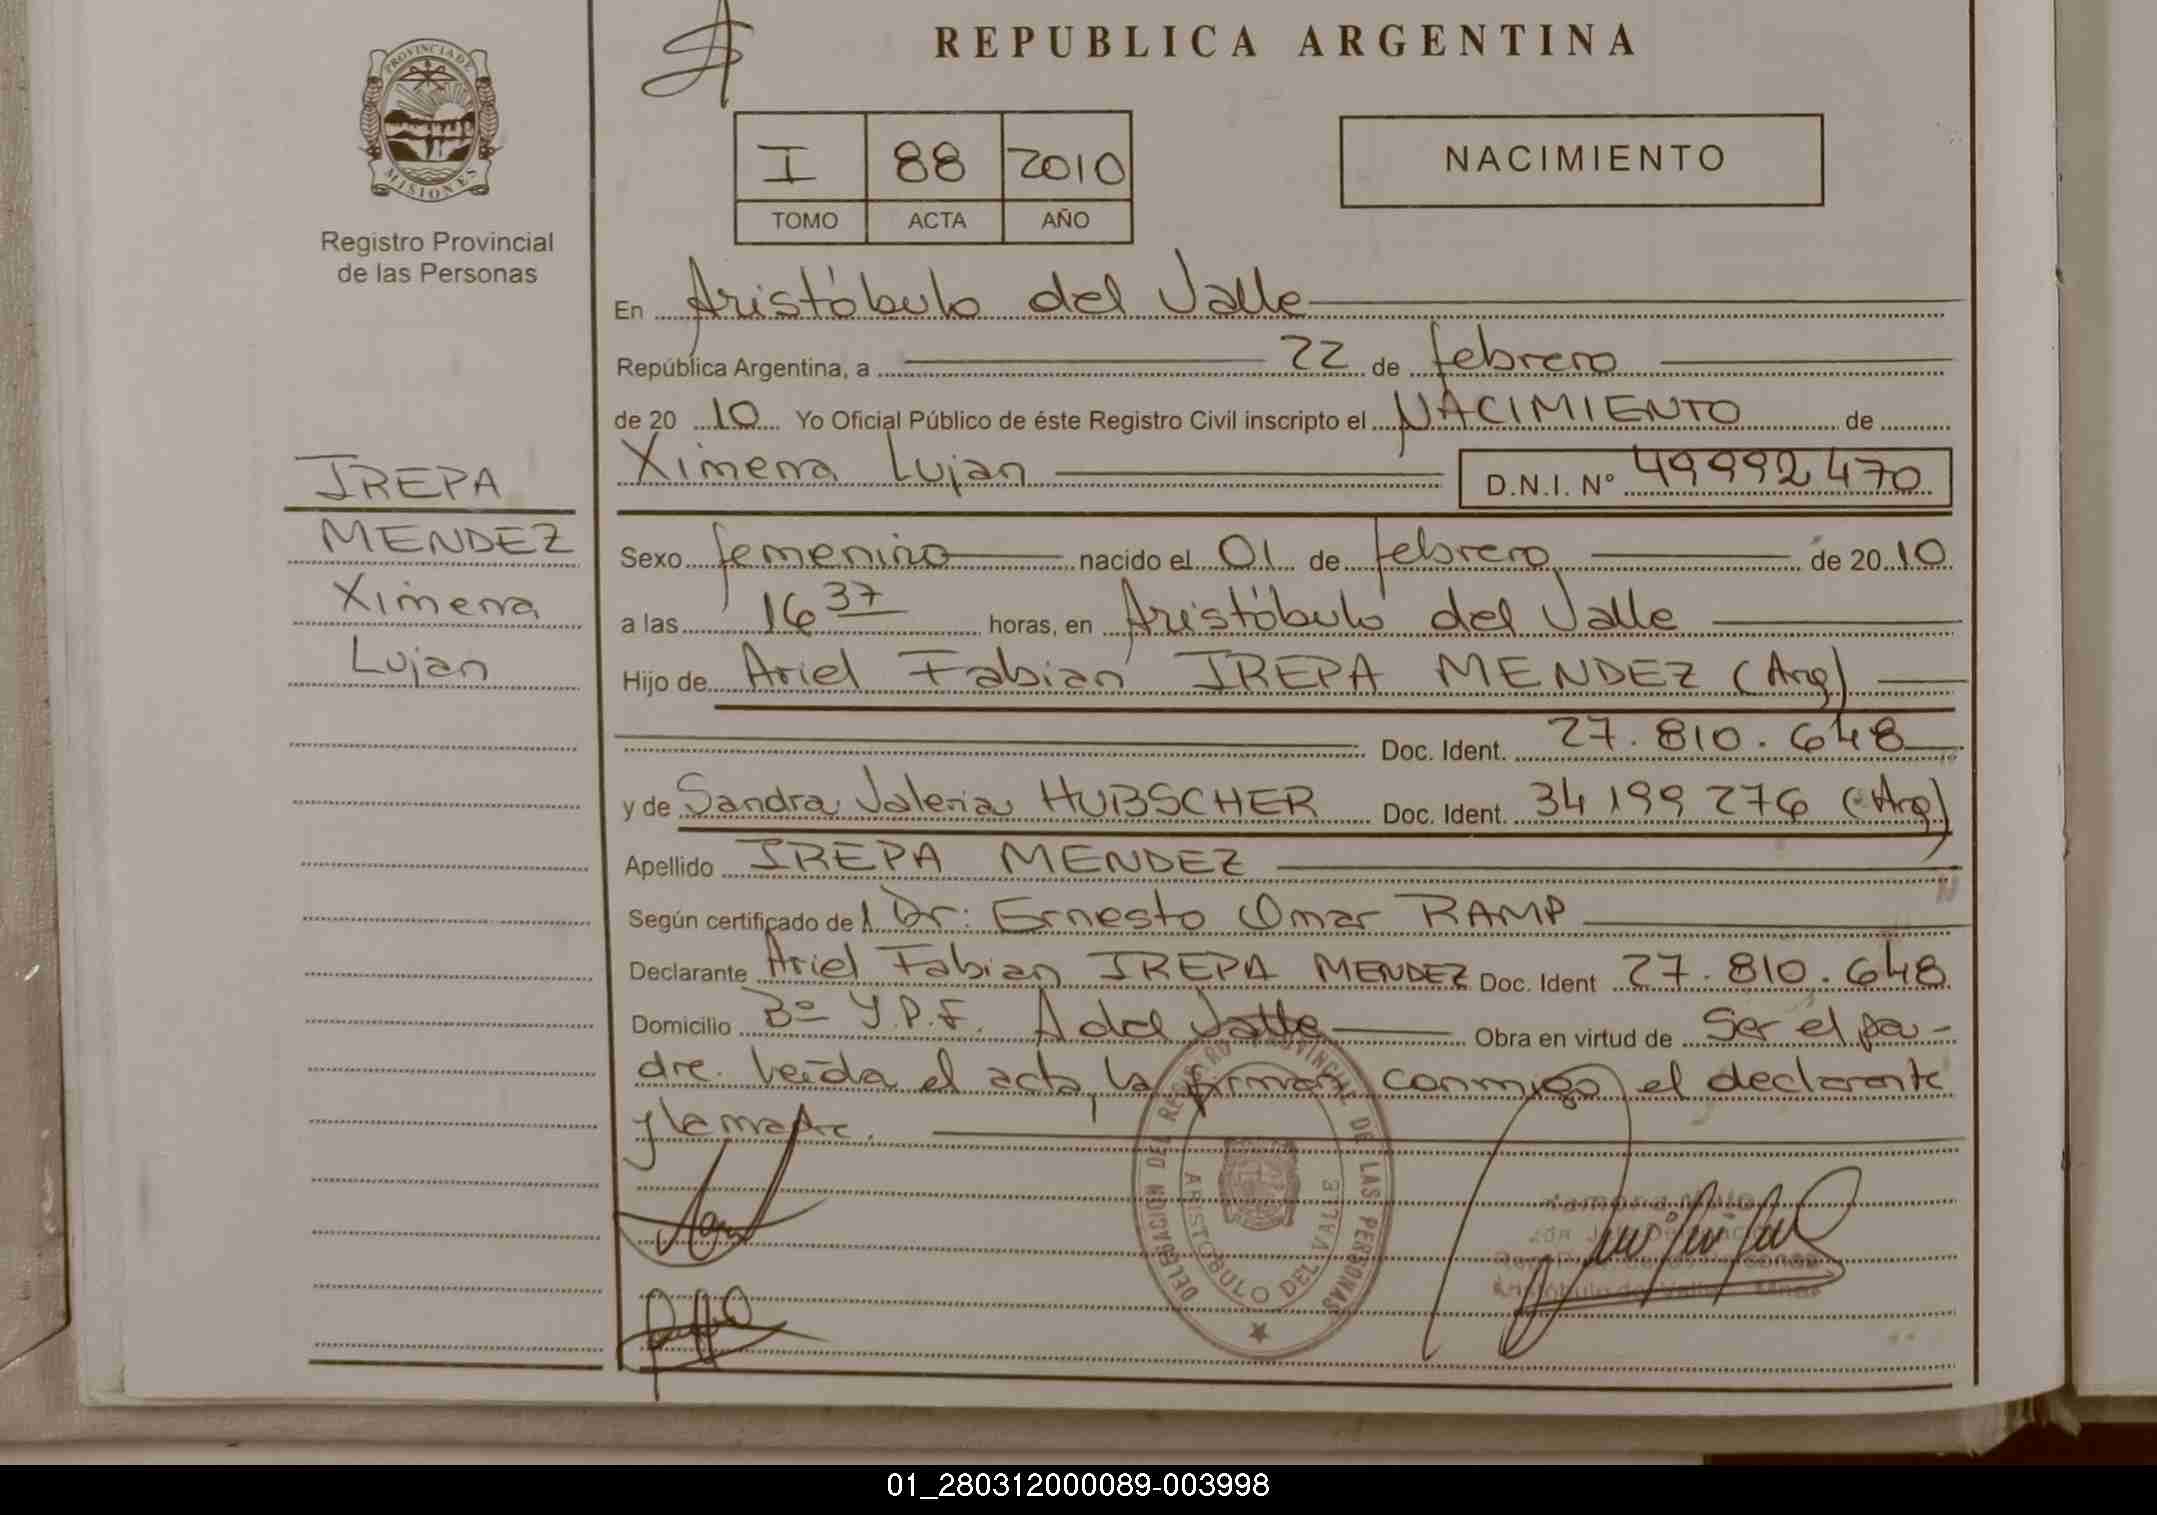 REPUBLICA ARGENTINA
PROVINCIA DE MISIONES
Registro Provincial
de las Personas
I 88 2010
TOMO ACTA AÑO
NACIMIENTO
En Aristóbulo del Valle
República Argentina, a 22 de febrero
de 2010 Yo Oficial Público de éste Registro Civil inscripto el NACIMIENTO de
Ximena Lujan D.N.I. Nº 49992470
IREPA
MENDEZ
Ximena
Lujan
Sexo femenino nacido el 01 de febrero de 2010
a las 16 37 horas, en Aristóbulo del Valle
Hijo de Ariel Fabian IREPA MENDEZ (Arg)
Doc. Ident. 27.810.648
y de Sandra Valeria HUBSCHER Doc. Ident. 34199276 (Arg)
Apellido IREPA MENDEZ
Según certificado del Dr: Ernesto Omar RAMP
Declarante Ariel Fabian IREPA MENDEZ Doc. Ident 27.810.648
Domicilio Bº Y.P.F. A del Valle Obra en virtud de Ser el pa-
dre. Leída el acta, la firman conmigo el declarante
y la madre.
DELEGACION DEL REGISTRO PROVINCIAL DE LAS PERSONAS
ARISTOBULO DEL VALLE
01_280312000089-003998